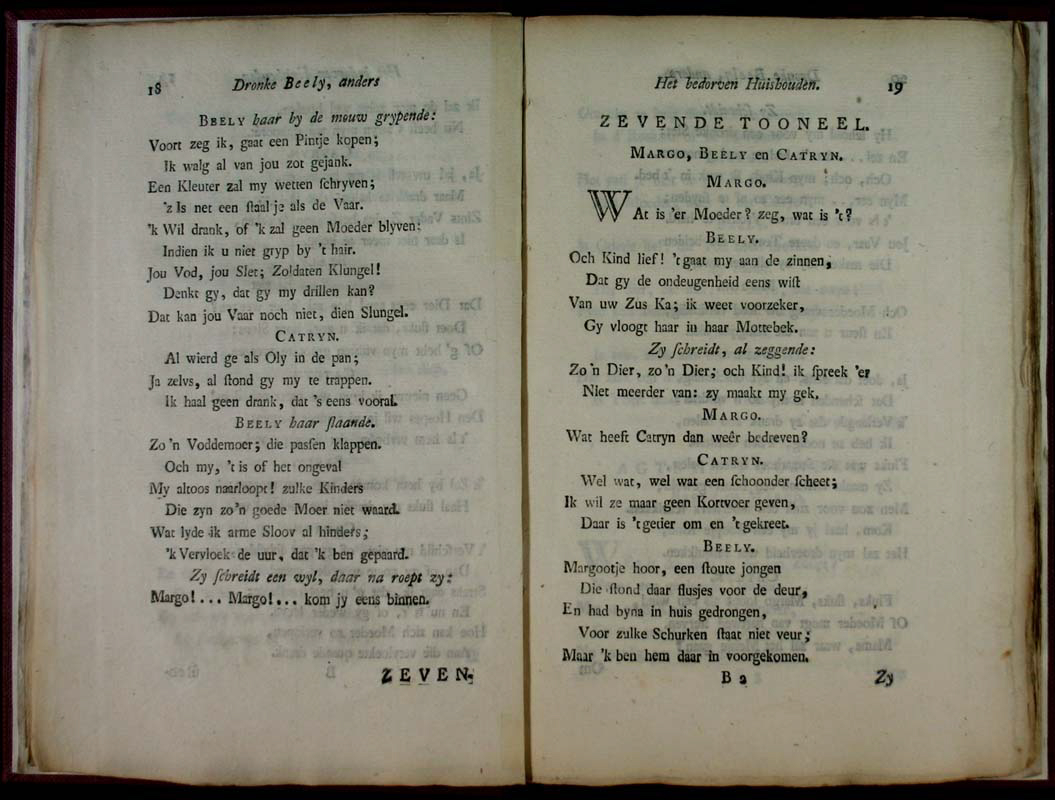 18 Dronke Beely, anders
BEELY haar by de mouw grypende:
Voort zeg ik, gaat een Pintje kopen;
Ik walg al van jou zot gejank.
Een Kleuter zal my wetten ſchryven;
'z Is net een ſtaalje als de Vaar.
'k Wil drank, of 'k zal geen Moeder blyven:
Indien ik u niet gryp by 't hair.
Jou Vod, jou Slet; Zoldaten Klungel!
Denkt gy, dat gy my drillen kan?
Dat kan jou Vaar noch niet, dien Slungel.
CATRYN.
Al wierd ge als Oly in de pan;
Ja zelvs, al ſtond gy my te trappen.
Ik haal geen drank, dat 's eens vooral.
BEELY haar ſlaande.
Zo 'n Voddemoer; die pasſen klappen.
Och my, 't is of het ongeval
My altoos naarloopt! zulke Kinders
Die zyn zo'n goede Moer niet waard.
Wat lyde ik arme Sloov al hinders;
'k Vervloek de uur, dat 'k ben gepaard.
Zy ſchreidt een wyl, daar na roept zy:
Margo! ... Margo! ... kom jy eens binnen.
ZEVEN-
Het bedorven Huishouden. 19
ZEVENDE TOONEEL.
MARGO, BEELY en CATRYN.
MARGO.
WAt is 'er Moeder? zeg, wat is 't?
BEELY.
Och Kind lief! 't gaat my aan de zinnen,
Dat gy de ondeugenheid eens wiſt
Van uw Zus Ka; ik weet voorzeker,
Gy vloogt haar in haar Mottebek.
Zy ſchreidt, al zeggende:
Zo'n Dier, zo'n Dier; och Kind! ik ſpreek 'er
Niet meerder van: zy maakt my gek.
MARGO.
Wat heeft Catryn dan weêr bedreven?
CATRYN.
Wel wat, wel wat een ſchoonder ſcheet;
Ik wil ze maar geen Kortvoer geven,
Daar is 't getier om en 't gekreet.
BEELY.
Margootje hoor, een ſtoute jongen
Die ſtond daar fluſjes voor de deur,
En had byna in huis gedrongen,
Voor zulke Schurken ſtaat niet veur;
Maar 'k ben hem daar in voorgekomen.
B 2 Zy